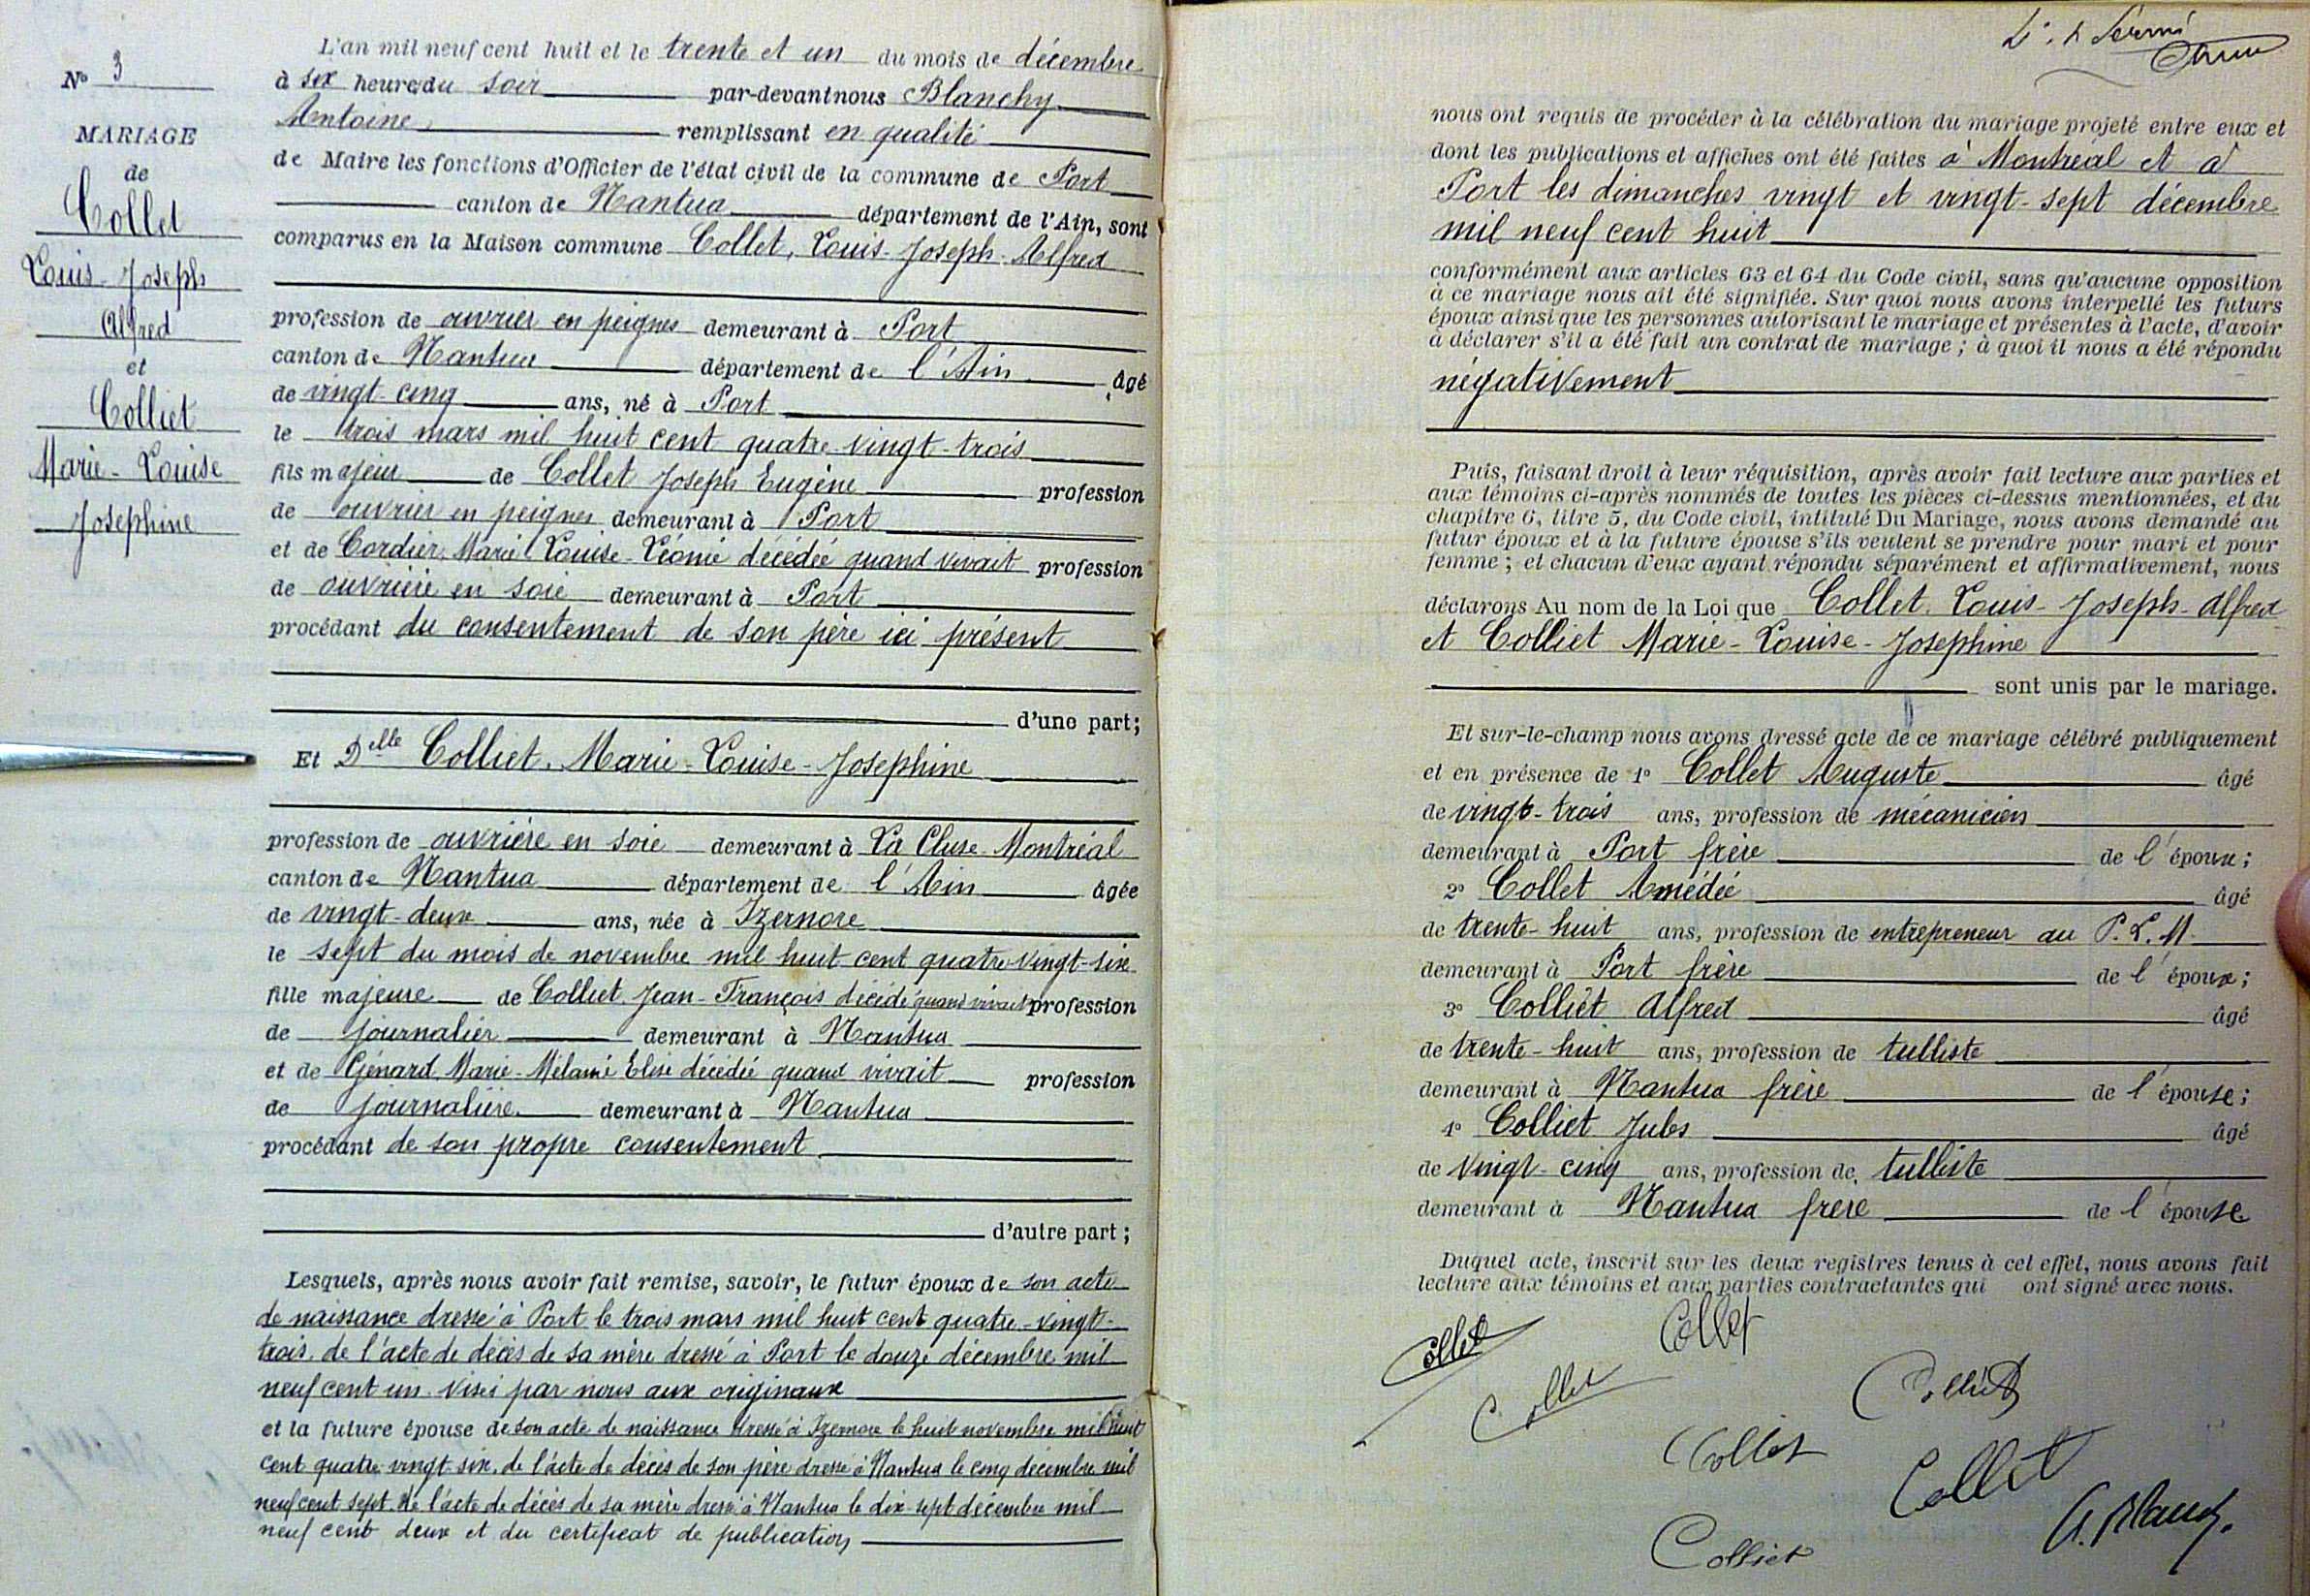 N° 3
MARIAGE
de
Collet
Louis-Joseph
Alfred
et
Colliet
Marie-Louise
Josephine
L'an mil neuf cent huit et le trente et un du mois de décembre
à six heures du soir par-devant nous Blanchy
Antoine remplissant en qualité
de Maire les fonctions d'Officier de l'état civil de la commune de Port
canton de Nantua département de l'Ain, sont
comparus en la Maison commune Collet, Louis-Joseph-Alfred
profession de ouvrier en peignes demeurant à Port
canton de Nantua département de l'Ain âgé
de vingt-cinq ans, né à Port
le trois mars mil huit cent quatre-vingt-trois
fils majeur de Collet Joseph Eugène profession
de ouvrier en peignes demeurant à Port
et de Cordier, Marie Louise-Léonie décédée quand vivait profession
de ouvrière en soie demeurant à Port
procédant du consentement de son père ici présent
d'une part;
Et Delle Colliet, Marie-Louise-Josephine
profession de ouvrière en soie demeurant à La Cluse Montréal
canton de Nantua département de l'Ain âgée
de vingt-deux ans, née à Izernore
le sept du mois de novembre mil huit cent quatre vingt-six
fille majeure de Colliet Jean-François décédé quand vivait profession
de journalier demeurant à Nantua
et de Génard, Marie-Mélanie Elise décédée quand vivait profession
de journalière demeurant à Nantua
procédant de son propre consentement
d'autre part;
Lesquels, après nous avoir fait remise, savoir, le futur époux de son acte
de naissance dressé à Port le trois mars mil huit cent quatre-vingt-
trois, de l'acte de décès de sa mère dressé à Port le douze décembre mil
neuf cent un visés par nous aux originaux
et la future épouse de son acte de naissance dressé à Izernore le huit novembre mil huit
cent quatre vingt six, de l'acte de décès de son père dressé à Nantua le cinq décembre mil
neuf cent sept, de l'acte de décès de sa mère dressé à Nantua le dix-sept décembre mil
neuf cent deux et du certificat de publication
nous ont requis de procéder à la célébration du mariage projeté entre eux et
dont les publications et affiches ont été faites à Montréal et à
Port les dimanches vingt et vingt-sept décembre
mil neuf cent huit
conformément aux articles 63 et 64 du Code civil, sans qu'aucune opposition
à ce mariage nous ait été signifiée. Sur quoi nous avons interpellé les futurs
époux ainsi que les personnes autorisant le mariage et présentes à l'acte, d'avoir
à déclarer s'il a été fait un contrat de mariage; à quoi il nous a été répondu
négativement
Puis, faisant droit à leur réquisition, après avoir fait lecture aux parties et
aux témoins ci-après nommés de toutes les pièces ci-dessus mentionnées, et du
chapitre 6, titre 5, du Code civil, intitulé Du Mariage, nous avons demandé au
futur époux et à la future épouse s'ils veulent se prendre pour mari et pour
femme; et chacun d'eux ayant répondu séparément et affirmativement, nous
déclarons Au nom de la Loi que Collet Louis-Joseph-Alfred
et Colliet Marie-Louise-Josephine
sont unis par le mariage.
Et sur-le-champ nous avons dressé acte de ce mariage célébré publiquement
et en présence de 1° Collet Auguste âgé
de vingt-trois ans, profession de mécanicien
demeurant à Port frère de l'époux;
2° Collet Amédée âgé
de trente-huit ans, profession de entrepreneur au P.L.M.
demeurant à Port frère de l'époux;
3° Colliet Alfred âgé
de trente-huit ans, profession de tulliste
demeurant à Nantua frère de l'épouse;
4° Colliet Jules âgé
de vingt-cinq ans, profession de tulliste
demeurant à Nantua frere de l'épouse
Duquel acte, inscrit sur les deux registres tenus à cet effet, nous avons fait
lecture aux témoins et aux parties contractantes qui ont signé avec nous.
Collet
Collet
Collet
Colliet
Collet
Collet
A. Blanchy
Colliet